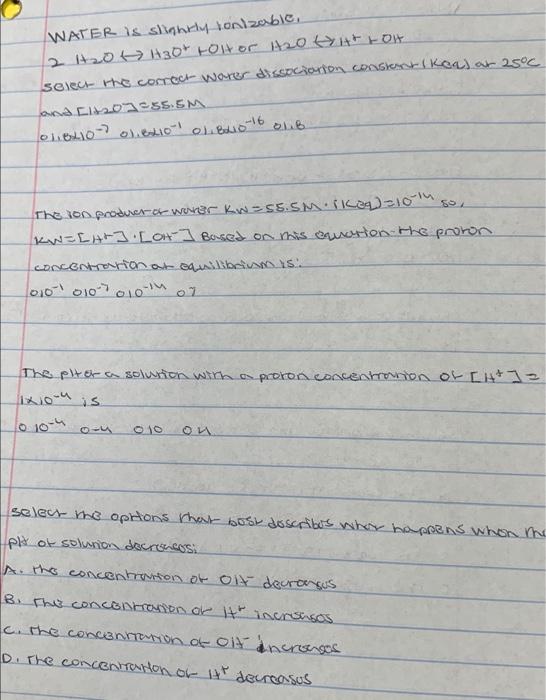 WATER is slightly ionizable.
2 H2O ↔ H3O⁺ + OH or H2O ↔ H⁺ + OH
select the correct water dissociation constant (Keq) at 25°C
and [H2O] = 55.5M
○ 1.8x10⁻⁷ ○ 1.8x10⁻¹ ○ 1.8x10⁻¹⁶ ○ 1.8
The ion product of water Kw = 55.5M · (Keq) = 10⁻¹⁴ so,
Kw = [H⁺] · [OH⁻] Based on this equation the proton
concentration at equilibrium is:
○ 10⁻¹ ○ 10⁻⁷ ○ 10⁻¹⁴ ○ 7
The pH of a solution with a proton concentration of [H⁺] =
1x10⁻⁴ is
○ 10⁻⁴ ○ -4 ○ 10 ○ 4
select the options that best describes what happens when the
pH of solution decreases:
A. the concentration of OH⁻ decreases
B. The concentration of H⁺ increases
C. the concentration of OH⁻ increases
D. The concentration of H⁺ decreases